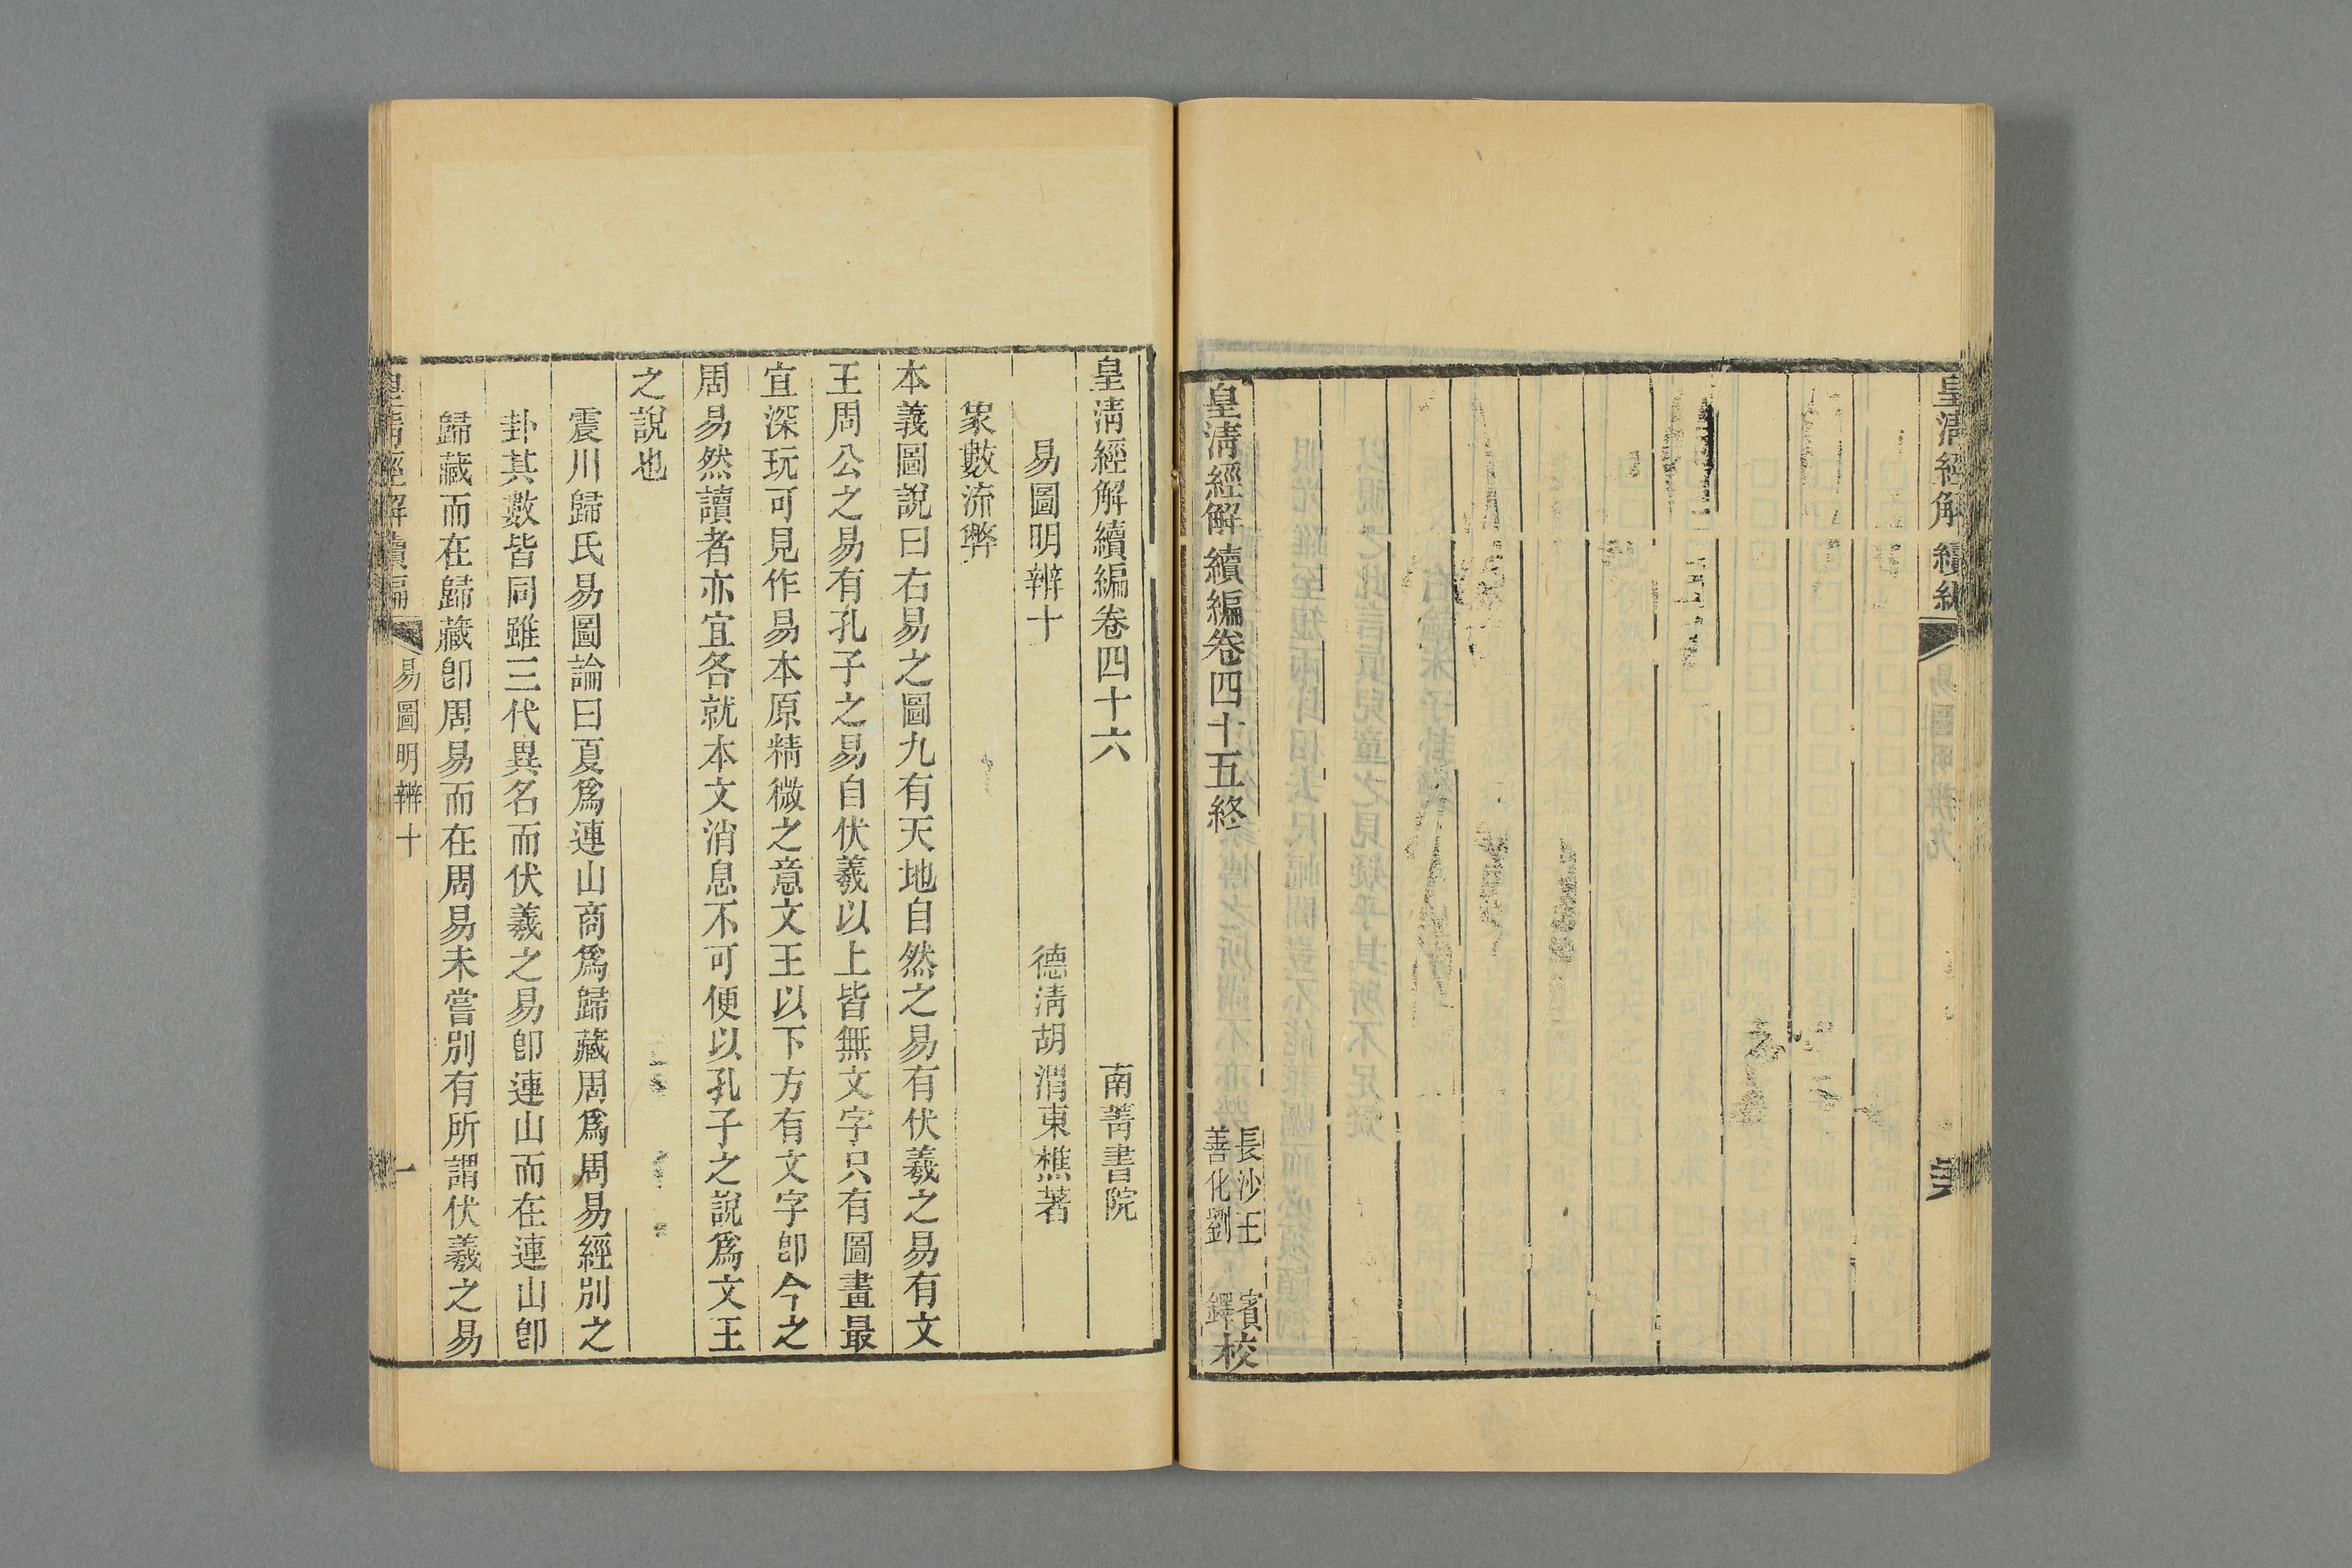 皇清經解續編
皇清經解續編卷四十五終
長沙王 賓
善化劉 鐸
校
皇清經解續編卷四十六 南菁書院
易圖明辨十 德清胡渭東樵著
象數流弊
本義圖說曰右易之圖九有天地自然之易有伏羲之易有文
王周公之易有孔子之易自伏羲以上皆無文字只有圖畫最
宜深玩可見作易本原精微之意文王以下方有文字卽今之
周易然讀者亦宜各就本文消息不可便以孔子之說爲文王
之說也
震川歸氏易圖論曰夏爲連山商爲歸藏周爲周易經別之
卦其數皆同雖三代異名而伏羲之易卽連山而在連山卽
歸藏而在歸藏卽周易而在周易未嘗別有所謂伏羲之易
皇清經解續編 易圖明辨十 一